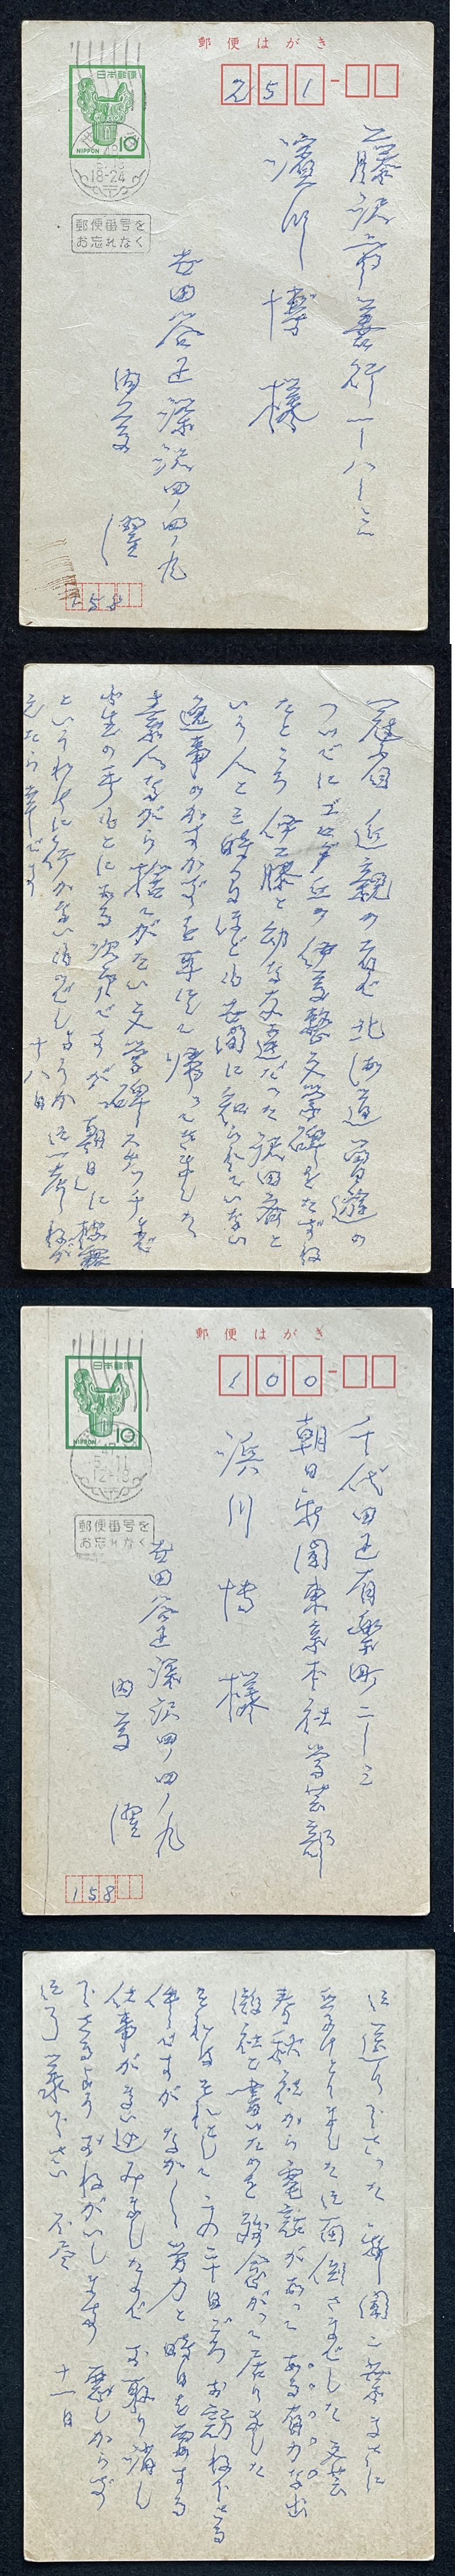 郵便はがき
251
日本郵便
NIPPON 10
18-24
郵便番号を
お忘れなく
藤沢市善行一ノ八ノ三
濱川博様
世田谷区深沢四ノ四ノ九
内藤濯
158
冠省 近親の者が北海道曽遊の
ついでにゴロダの丘の伊藤整文学碑をたずね
たところ 伊藤と幼な友達だった
いう人と三時間ほども世間に知られていない
逸事のかずかずを
素人ながら捨てがたい文学碑スケッチまで
小生の手もとにある次第ですが 朝日に
というわけに行かないものでしょうか 御一考ねが
えたら幸です 十八日
郵便はがき
100
日本郵便
NIPPON 10
47
12-18
郵便番号を
お忘れなく
千代田区有楽町二ノ三
朝日新聞東京本社学芸部
浜川博様
世田谷区深沢四ノ四ノ九
内藤濯
158
御送り下さった新聞二葉まさに
受けとりました 御面倒さまでした 文芸
春秋社から電話があって ある有力な出
版社と書いたのを残念がって居りました
それはそれとして この二十日ごろお訪ね下さる
件ですが なかなか労力と時日を要する
仕事がまい込みましたので お取り消し
下さるようおねがいします 悪しからず
御了承下さい 不尽 十一日